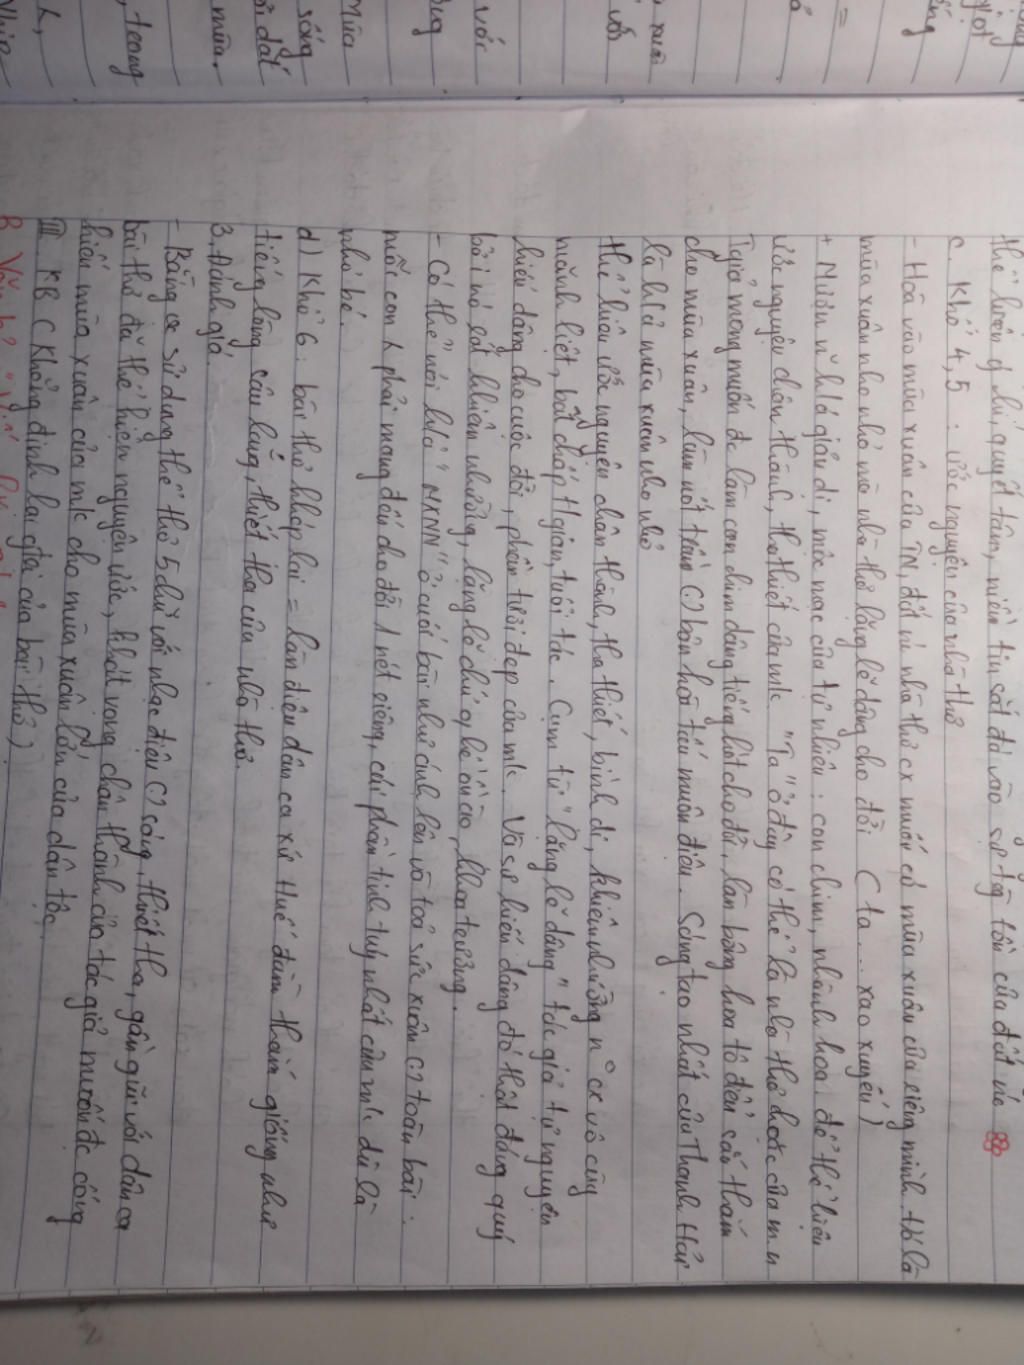 thể hiện ý chí, quyết tâm, niềm tin sắt đá vào sự tg tồn của đất nc
c. Khổ 4, 5 : ước nguyện của nhà thơ
- Hoà vào mùa xuân của TN, đất nc nhà thơ cx muốn có mùa xuân của riêng mình. đó là
mùa xuân nho nhỏ mà nhà thơ lặng lẽ dâng cho đời ( ta ... xao xuyến )
+ Mượn h/a giản dị, mộc mạc của tự nhiên : con chim, nhành hoa để thể hiện
ước nguyện chân thành, tha thiết của mk "Ta" ở đây có thể là nhà thơ hoặc của m n
T/giả mong muốn đc làm con chim dâng tiếng hót cho đời, làm bông hoa tô điểm sắc thắm
cho mùa xuân, làm nốt trầm () bản hoà tấu muôn điệu. Sáng tạo nhất của Thanh Hải
là h/a mùa xuân nho nhỏ
thể hiện ước nguyện chân thành, tha thiết, bình dị, khiêm nhường n° cx vô cùng
mãnh liệt, bất chấp t gian, tuổi tác. Cụm từ "lặng lẽ dâng" tác giả tự nguyện
hiến dâng cho cuộc đời, phần tươi đẹp của mk. Và sự hiến dâng đó thật đáng quý
bởi nó rất khiêm nhường, lặng lẽ chứ ko hề ồn ào, khoa trương.
- Có thể nói h/a "MXNN" ở cuối bài như ánh lên và toả sức xuân () toàn bài :
mỗi con n phải mang đến cho đời 1 nét riêng, cái phần tinh tuý nhất của mk dù là
nhỏ bé.
d) Khổ 6 : bài thơ khép lại = làn điệu dân ca xứ Huế đằm thắm giống như
tiếng lòng sâu lắng, thiết tha của nhà thơ.
3, Đánh giá.
- Bằng cs sử dụng thể thơ 5 chữ với nhạc điệu () sáng, thiết tha, gần gũi với dân ca
bài thơ đã thể hiện nguyện ước, khát vọng chân thành của tác giả muốn đc cống
hiến mùa xuân của mk cho mùa xuân lớn của dân tộc.
III KB ( Khẳng định lại gtrị của bài thơ )